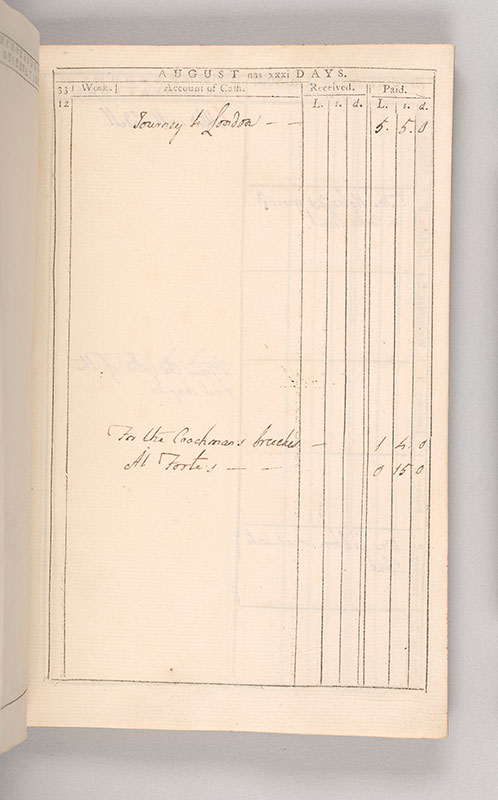 AUGUST has xxxi DAYS.
33] Week.] Account of Cash. Received. Paid.
12 L. s. d. L. s. d.
Journey to London - - 5. 5. 0
For the Coachmans breeches - 1 4 0
At Forte's - - 0 15 0